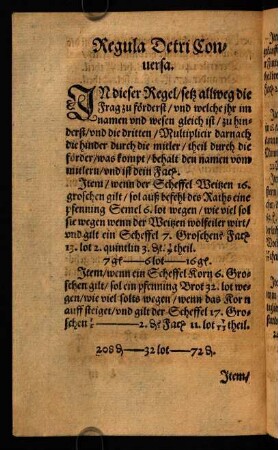 Regula Detri Con⸗
uersa.
IN dieser Regel/setz allweg die
Frag zu förderst/vnd welche jhr im
namen vnd wesen gleich ist/zu hin⸗
derst/vnd die dritten/Multiplicir darnach
die hinder durch die mitler/theil durch die
förder/was kompt/behalt den namen vom
mitlern/vnd ist dein Fact.
Item/wenn der Scheffel Weitzen 16.
groschen gilt/sol auß befehl des Raths eine
pfenning Semel 6. lot wegen/wie viel sol
sie wegen wenn der Weitzen wolfeiler wirt/
vnd gilt ein Scheffel 7. Groschen? Fact
13. lot 2. quintlin 3. theil.
7 gl—6 lot—16 gl.
Item/wenn ein Scheffel Korn 6. Gro⸗
schen gilt/sol ein pfenning Brot 32. lot we⸗
gen/wie viel solts wegen/wenn das Korn
auff steiget/vnd gilt der Scheffel 17. Gro⸗
schen 2. Fact 11. lot theil.
208 —32 lot—72
Item/